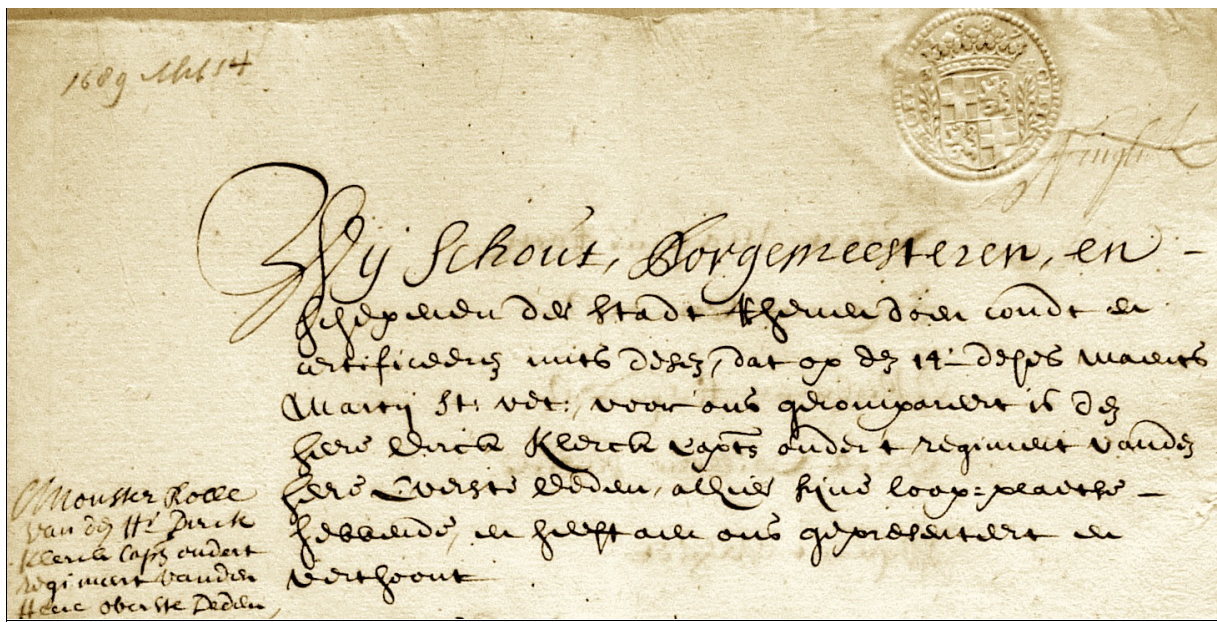 1689 Mrt 14
Wij Schout, Borgemeesteren, en -
schepenen der stadt Rhenen doen condt en
certificeerẽ mits desẽ, dat op dẽ 14 - deses maents
Martij St: vet:, voor ons gecompareert is dẽ
here Dirck Klerck Captˢ ondert regiment vandẽ
here Overste Deden, alhier sijne loop=plaetse -
hebbende, en heeft aen ons gepresenteert en
verthoont
Monster Rolle
van dẽ Hʳ Dirck
Klerck Capˢ ondert
regiment vanden
Here oberste Deden,